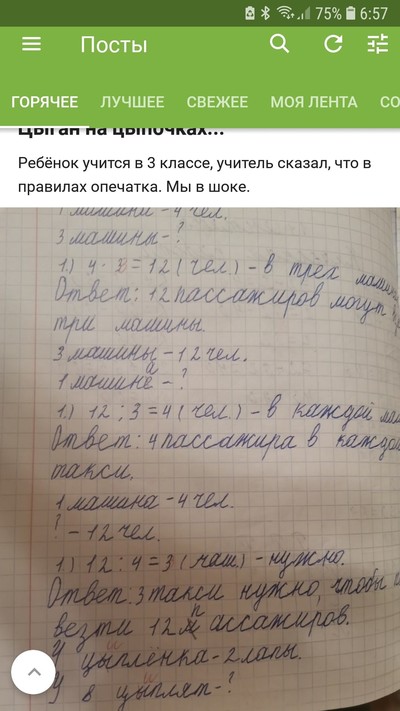 75% 6:57
Посты
ГОРЯЧЕЕ ЛУЧШЕЕ СВЕЖЕЕ МОЯ ЛЕНТА СО
Цыган на цыпочках...
Ребёнок учится в 3 классе, учитель сказал, что в
правилах опечатка. Мы в шоке.
1 машина - 4 чел.
3 машины - ?
1) 4 · 3 = 12 (чел.) - в трёх маши
Ответ: 12 пассажиров могут
три машины.
3 машины - 12 чел.
1 машине - ?
1) 12 : 3 = 4 (чел.) - в каждой
Ответ: 4 пассажира в кажд
такси.
1 машина - 4 чел.
? - 12 чел.
1) 12 : 4 = 3 (маш.) - нужно.
Ответ: 3 такси нужно, чтобы
везти 12 пассажиров.
У цыплёнка - 2 лапы.
У 8 цыплят - ?